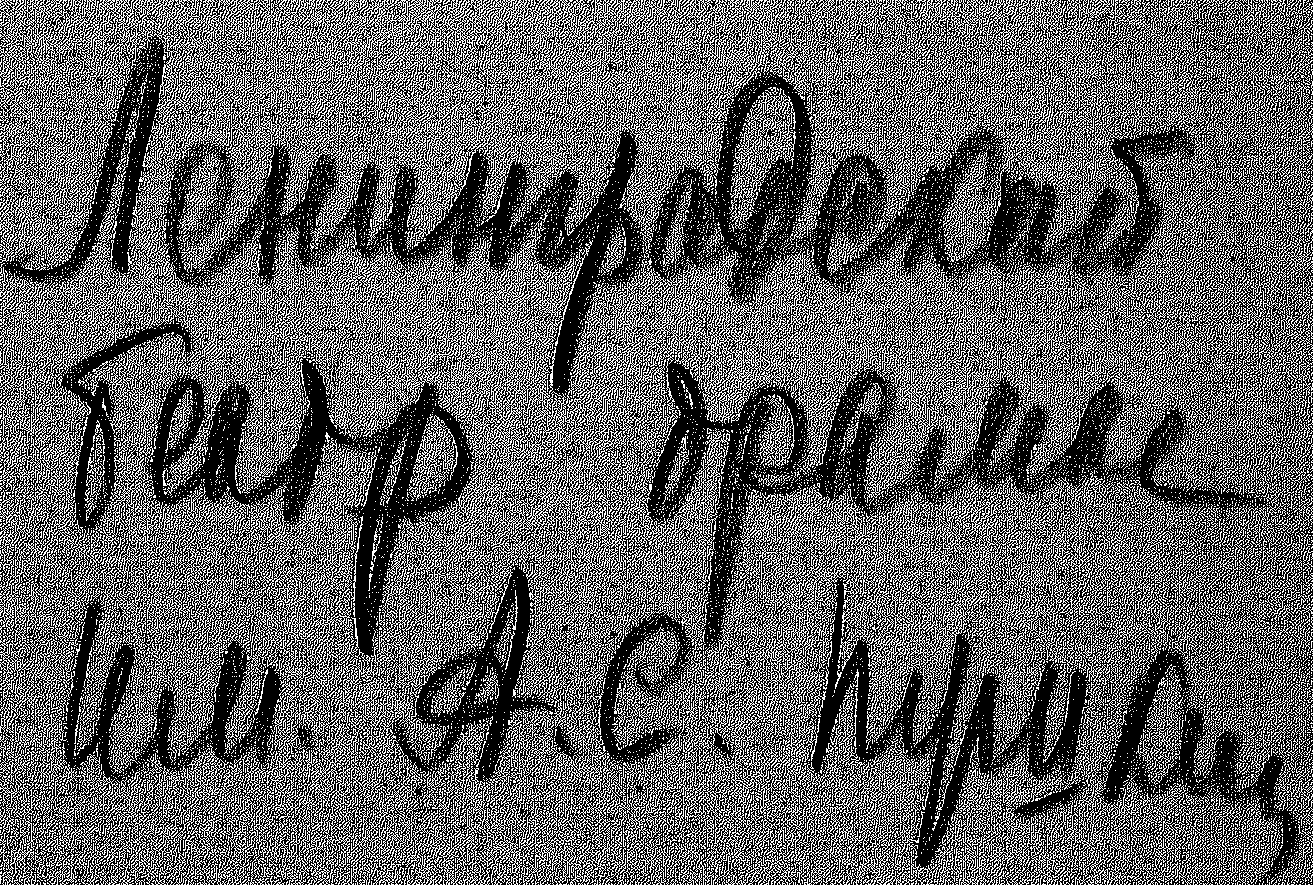 Ленинградский
Театр драмы
им. А. С. Пушкин